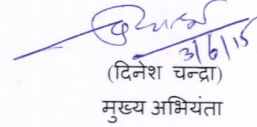 3/6/15
(दिनेश चन्द्रा)
मुख्य अभियंता